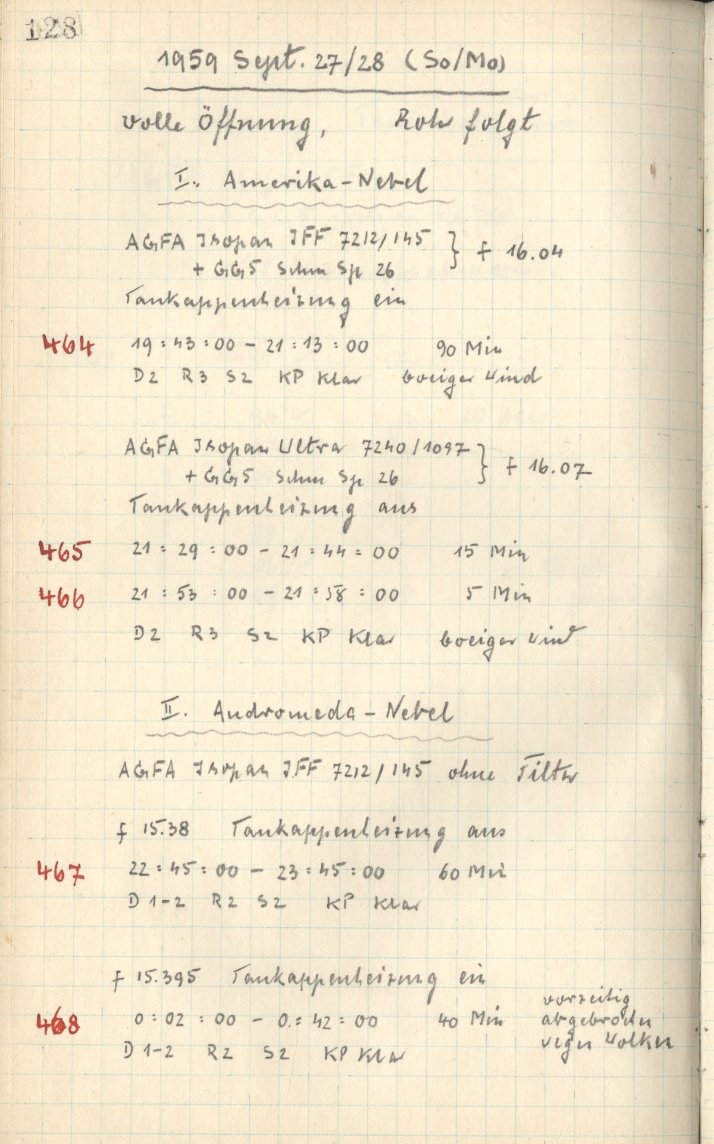 128
1959 Sept. 27/28 (So/Mo)
volle Öffnung, Rohr folgt
I. Amerika-Nebel
AGFA Isopan IFF 7212/145 } f 16.04
+ GG5 Schm Sp 26
Taukappenheizung ein
464 19:43:00 - 21:13:00 90 Min
D2 R3 S2 KP Klar boeiger Wind
AGFA Isopan Ultra 7240/1097 } f 16.07
+ GG5 Schm Sp 26
Taukappenheizung aus
465 21:29:00 - 21:44:00 15 Min
466 21:53:00 - 21:58:00 5 Min
D2 R3 S2 KP Klar boeiger Wind
II. Andromeda-Nebel
AGFA Isopan IFF 7212/145 ohne Filter
f 15.38 Taukappenheizung aus
467 22:45:00 - 23:45:00 60 Min
D 1-2 R2 S2 KP Klar
f 15.395 Taukappenheizung ein
468 0:02:00 - 0:42:00 40 Min vorzeitig
abgebrochen
wegen Wolken
D 1-2 R2 S2 KP Klar